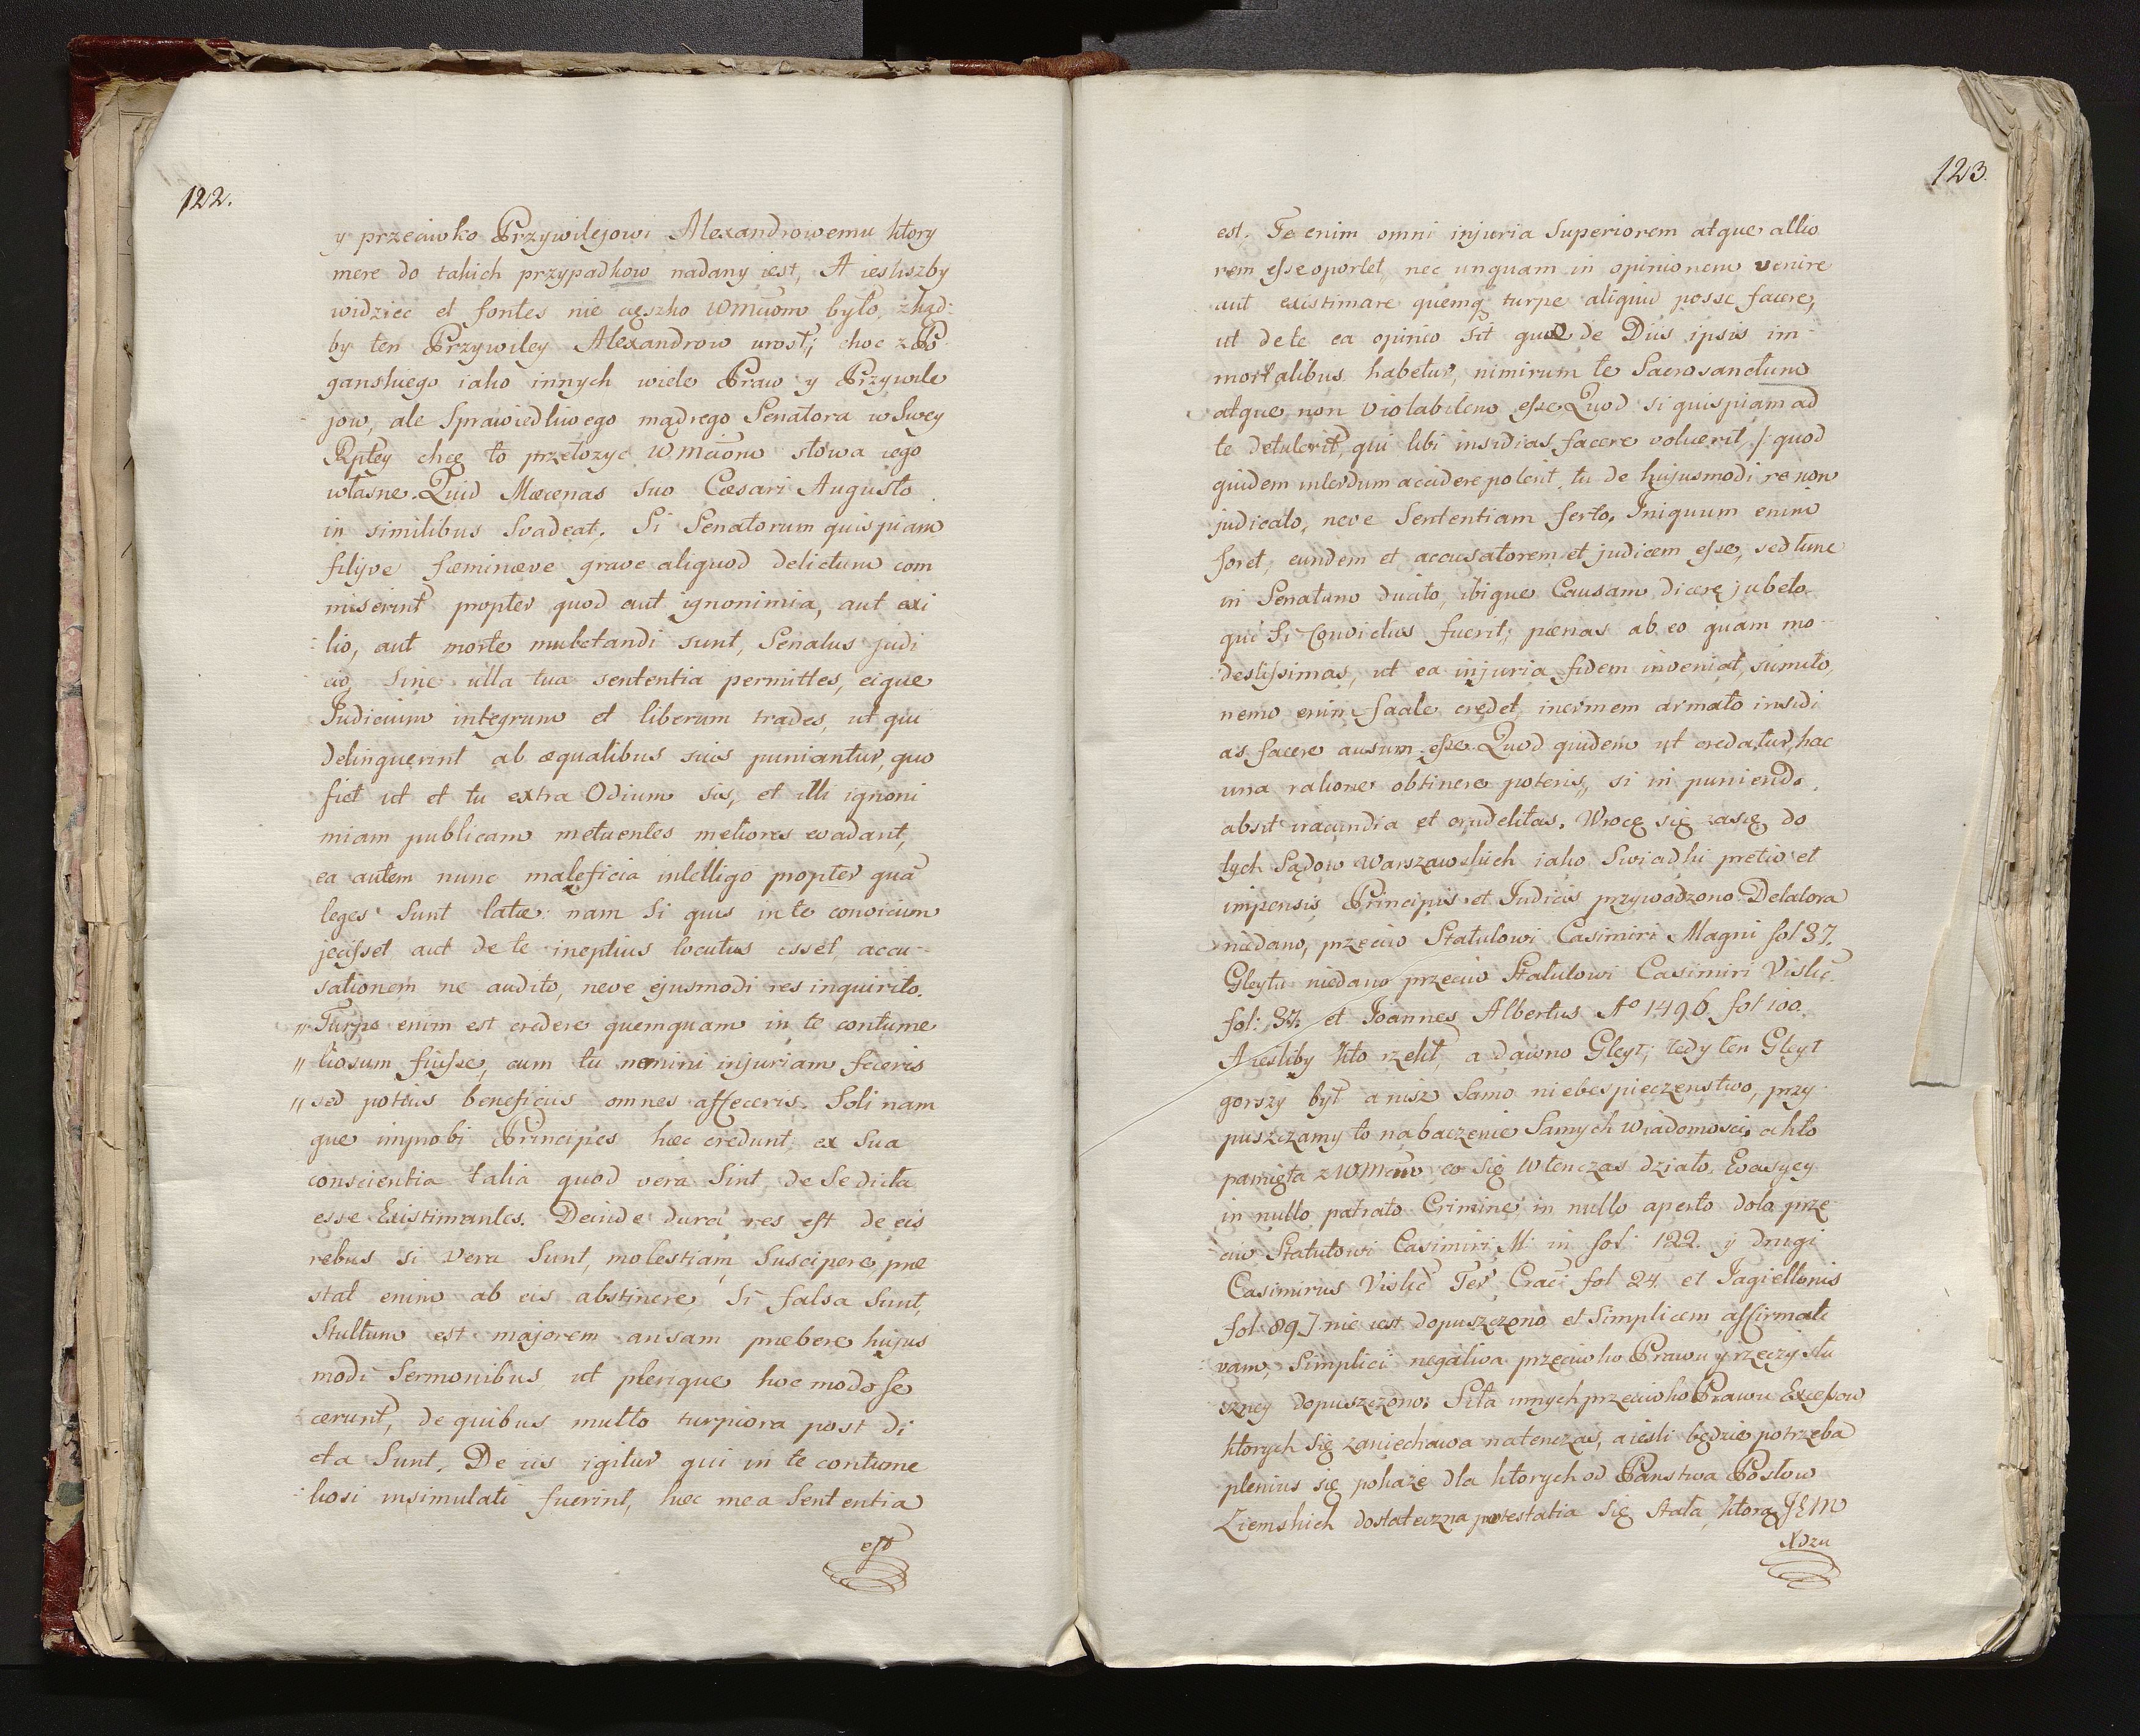 122.
y przeciwko Przywilejowi Alexandrowemu ktory
mere do takich przypadkow nadany iest, A iesliszby
widziec et fontes nie cięszko WMciom było, zkąd
by ten Przywiley Alexandrow urosł; choc z Po
ganskiego iako innych wiele Praw y Przywile
jow, ale Sprawiedliwego mądrego Senatora w Swey
Rptey chcę to przełozyc WMciom słowa iego
własne. Quid Mæcenas suo Cæsari Augusto
in similibus Svadeat. Si Senatorum quispiam
filijve fæminæve grave aliquod delictum com
miserint propter quod aut ignonimia, aut exi
lio, aut morte mulctandi sunt, Senatus judi
cio, Sine ulla tua sententia permittes, eique
Judicium integrum et liberum trades, ut qui
delinquerint ab æqualibus suis puniantur, quo
fiet ut et tu extra Odium sis, et illi ignoni
miam publicam metuentes meliores evadant,
ea autem nunc maleficia intelligo propter quæ
leges Sunt latæ: nam Si quis in te convicium
jecisset aut de te ineptius locutus esset, accu-
sationem ne audito, neve ejusmodi res inquirito.
" Turpe enim est credere quemquam in te contume
" liosum fuisse, cum tu nemini injuriam feceris
" sed potius beneficiis omnes affeceris. Soli nam
que improbi Principes hæc credunt, ex Sua
conscientia talia quod vera Sint, de Se dicta
esse Existimantes. Deinde dura res est de eis
rebus si vera Sunt, molestiam Suscipere, præ
stat enim ab eis abstinere, Si falsa Sunt,
Stultum est majorem ansam præbere hujus
modi Sermonibus ut plerique hoc modo fe
cerunt, de quibus multo turpiora post di
cta Sunt. De iis igitur qui in te contume
liosi insimulati fuerint, hæc mea Sententia
est
123
est. Te enim omni injuria Superiorem atque altio
rem esse oportet, nec unquam in opinionem venire
aut existimare quemq turpe aliquid posse facere,
ut de te ea opinio sit quæ de Diis ipsis im-
mortalibus habetur, nimirum te Sacrosanctum
atque non violabilem esse. Quod si quispiam ad
te detulerit, qui tibi insidias facere voluerit /: quod
quidem interdum accidere poterit, tu de hujusmodi re non
judicato, neve Sententiam ferto. Iniquum enim
foret, eundem et accusatorem et judicem esse, sed tunc
in Senatum ducito, ibique Causam dicere jubeto
qui Si Convictus fuerit; pænas ab eo quam mo-
destissimas, ut ea injuria fidem inveniat, sumito,
nemo enim facile credet, inermem armato insidi
as facere ausum esse. Quod quidem ut credatur, hac
una ratione obtinere poteris, si in puniendo
absit iracundia et crudelitas. Wrocę się zasię do
tych Sądow Warszawskich iako Swiadki pretio et
impensis Principis et Judicis przywodzono Delatora
niedano, przeciw Statutowi Casimiri Magni fol 37.
Gleytu niedano przeciw Statutowi Casimiri Vislic
fol: 37. et Joannes Albertus Ao 1496 fol 100.
A iesliby kto rzekł, a dawno Gleyt; tedy ten Gleyt
gorszy był anisz Samo niebespieczenstwo, przy
puszczamy to na baczenie Samych wiadomosci, a kto
pamięta z WMciow co Się Wtenczas działo. Evasyey
in nullo patrato Crimine in nullo aperto dolo prze
ciw Statutowi Casimiri M: in fol: 122. y drugi
Casimirus Vislic Ter Crac fol 24. et Jagiellonis
fol: 89 J. nie iest dopuszczono et Simplicem affirmati
vam, Simplici negativa przeciwko Prawu y rzeczy Słu
szney dopuszczono. Siła innych przeciwko Prawu Excessow
ktorych Się zaniechawa natenczas, a iesli będzie potrzeba
plenius się pokaże dla ktorych od Panstwa Posłow
Ziemskich dostateczna protestatia Się Stała, ktorą JEM
Xdzu